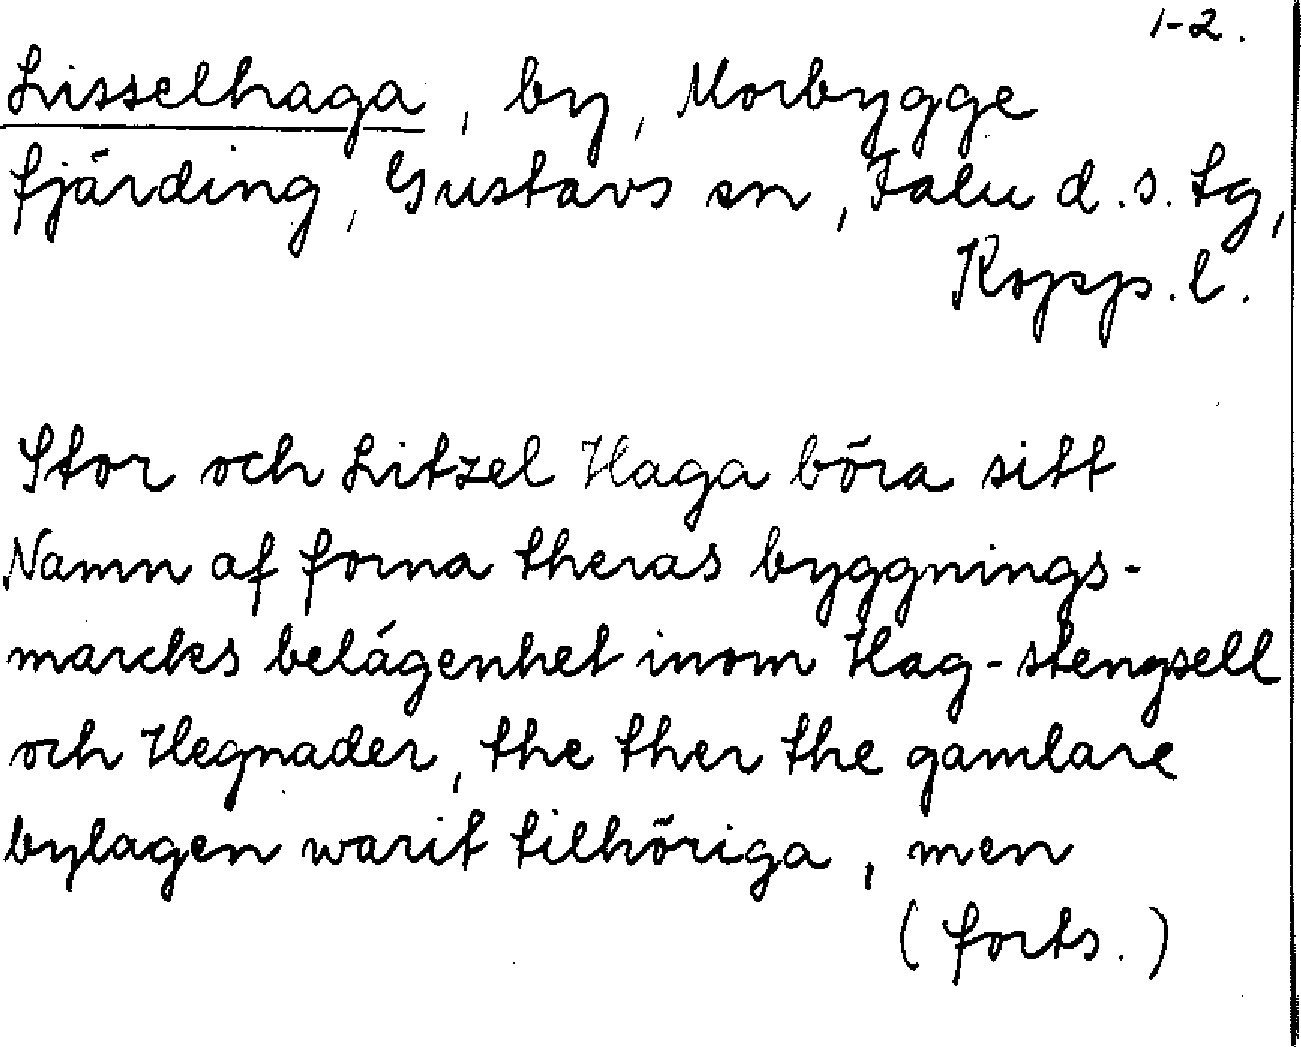 1-2.
Lisselhaga, by, Morbygge
fjärding, Gustavs sn, Falu d.s. tg,
Kopp. l.
Stor och Litzel Haga böra sitt
Namn af forna theras byggnings-
marcks belägenhet inom Hag-stengsell
och Hegnader, the ther the gamlare
bylagen warit tilhöriga, men
(forts.)